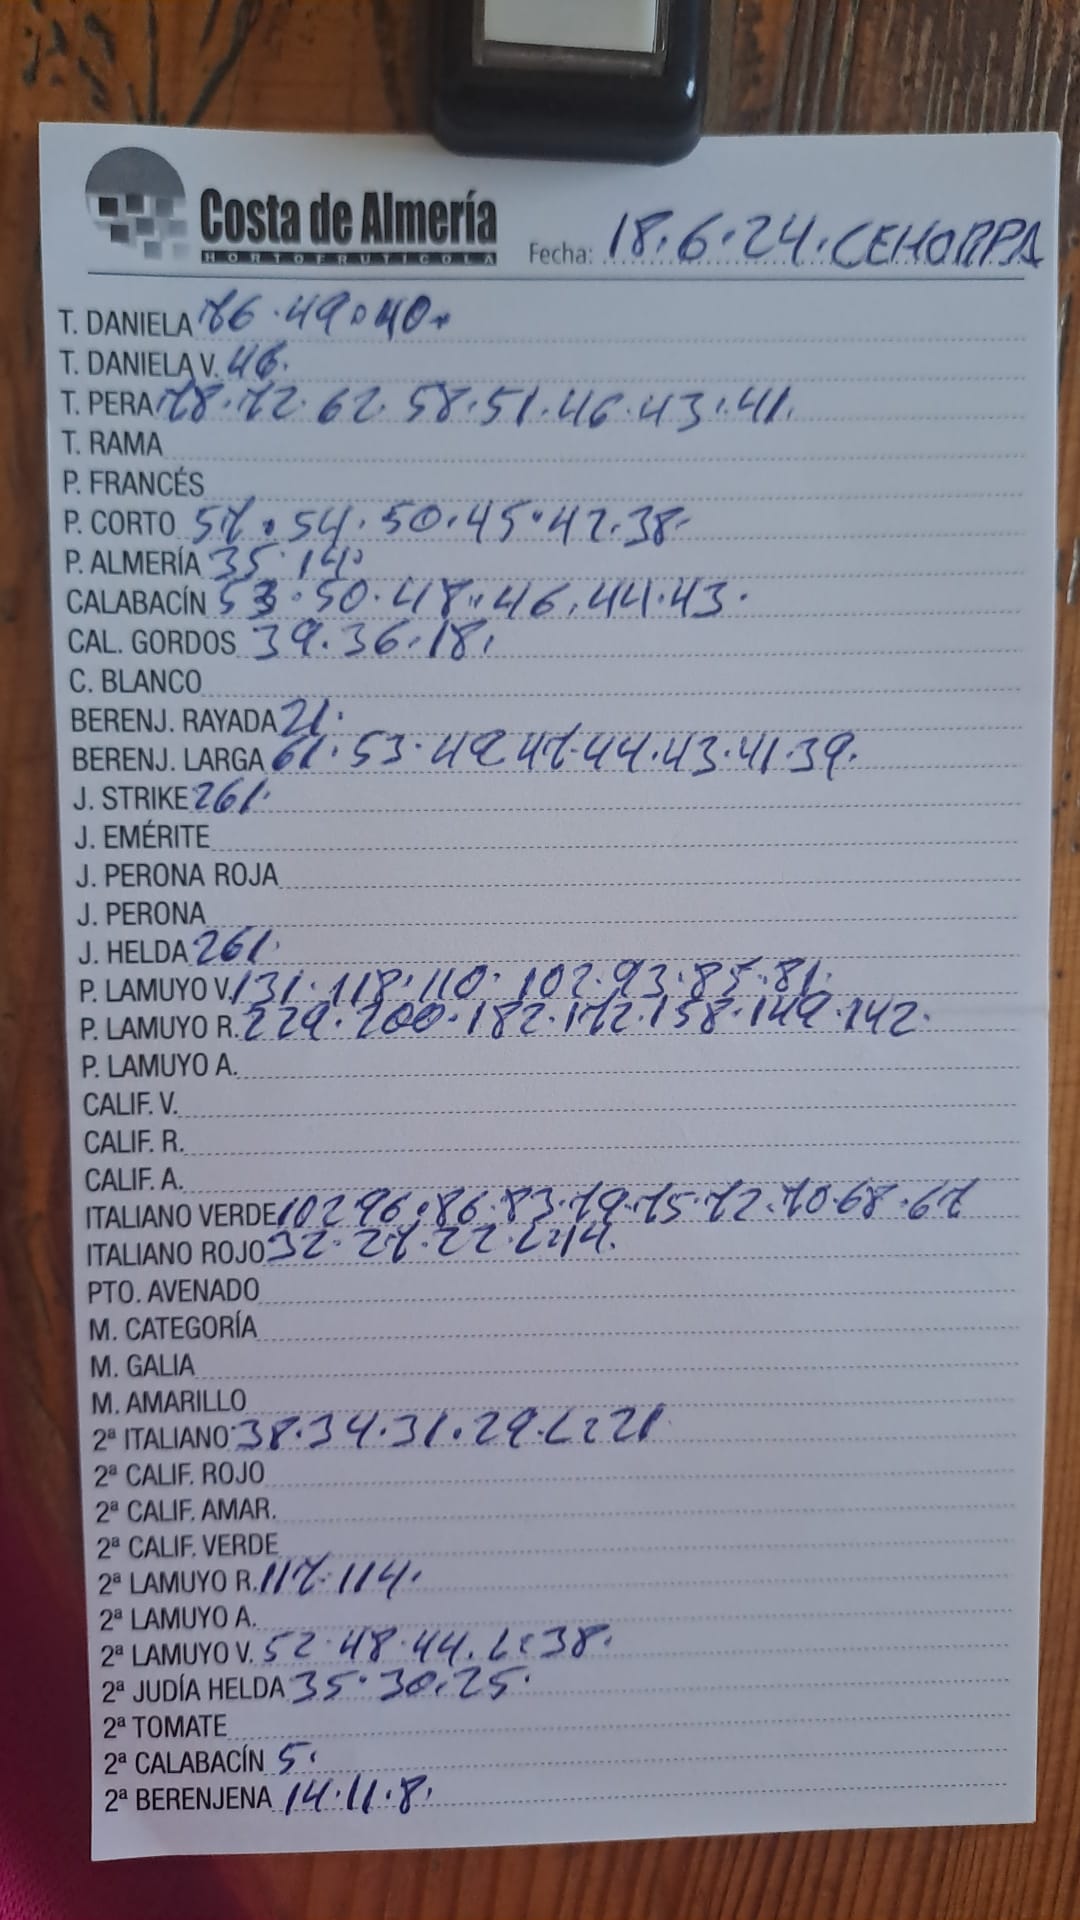 Costa de Almería
HORTOFRUTICOLA
Fecha: 18.6.24.CEHORPA
T. DANIELA 76.49.40.
T. DANIELA V. 46.
T. PERA 78.72.62.58.51.46.43.41.
T. RAMA
P. FRANCÉS
P. CORTO 57.54.50.45.42.38.
P. ALMERÍA 35.14.
CALABACÍN 53.50.48.46.44.43.
CAL. GORDOS 39.36.18.
C. BLANCO
BERENJ. RAYADA 21.
BERENJ. LARGA 61.53.49.47.44.43.41.39.
J. STRIKE 261.
J. EMÉRITE
J. PERONA ROJA
J. PERONA
J. HELDA 261.
P. LAMUYO V. 131.118.110.102.93.85.81.
P. LAMUYO R. 229.200.182.172.158.149.142.
P. LAMUYO A.
CALIF. V.
CALIF. R.
CALIF. A.
ITALIANO VERDE 102 96.86.83.79.75.72.70.68.67
ITALIANO ROJO 32.27.22.L:14.
PTO. AVENADO
M. CATEGORÍA
M. GALIA
M. AMARILLO
2ª ITALIANO 38.34.31.29.L:21
2ª CALIF. ROJO
2ª CALIF. AMAR.
2ª CALIF. VERDE
2ª LAMUYO R. 117.114.
2ª LAMUYO A.
2ª LAMUYO V. 52.48.44.L:38.
2ª JUDÍA HELDA 35.30.25.
2ª TOMATE
2ª CALABACÍN 5.
2ª BERENJENA 14.11.8.